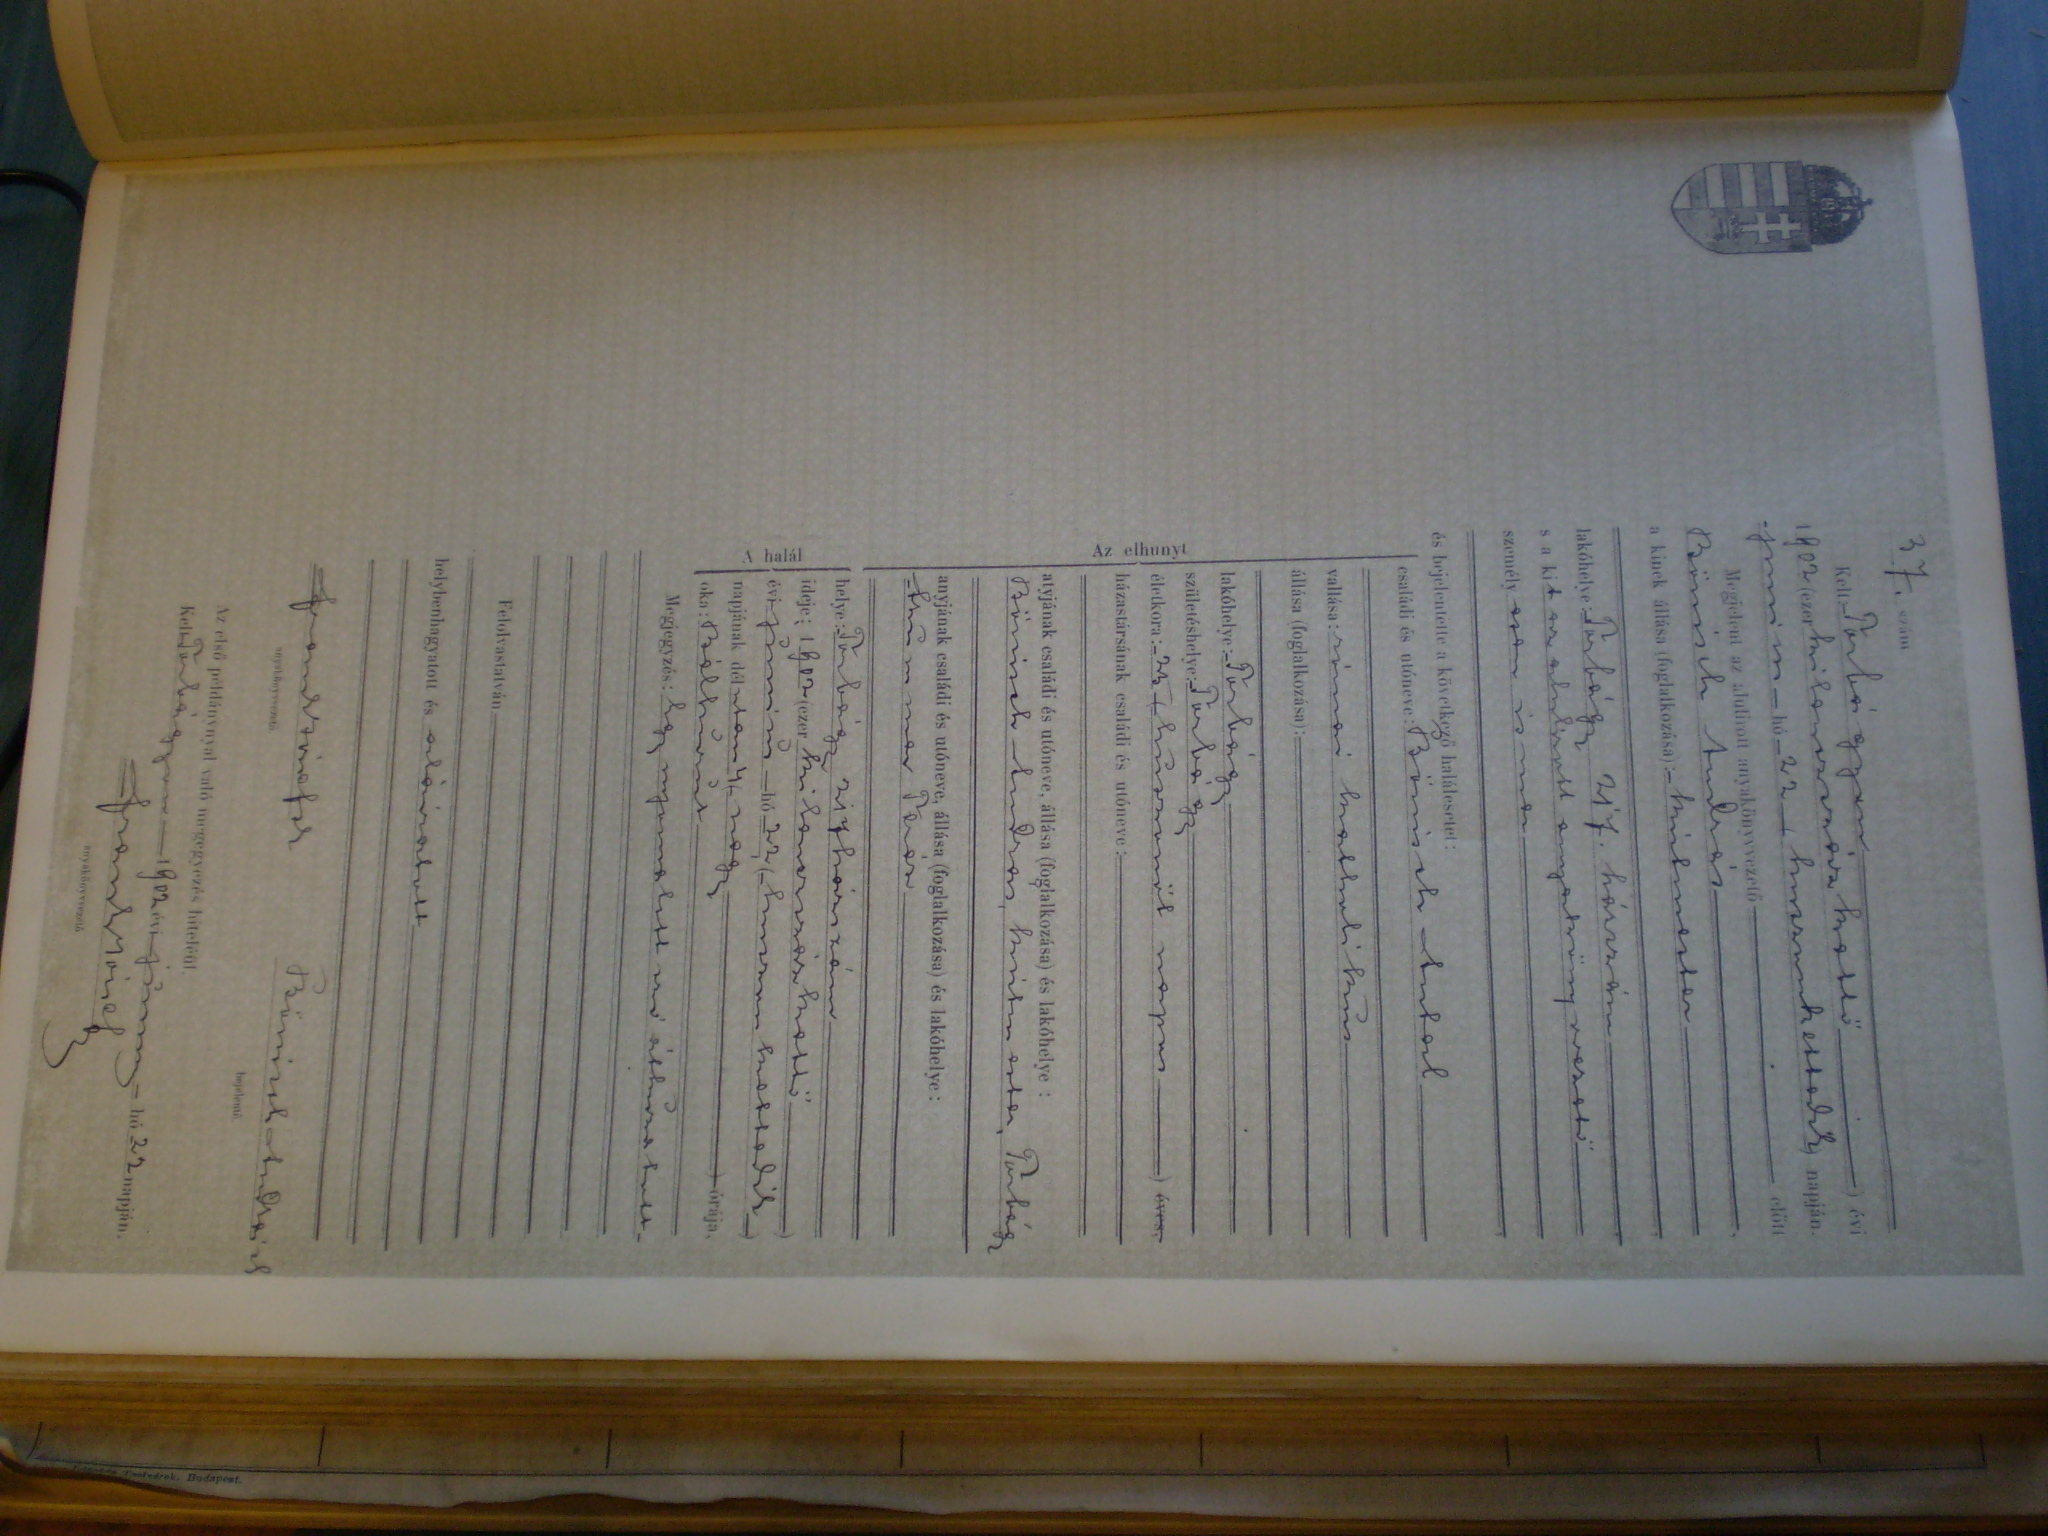 37. szám
Kelt Torbágyon
1902 (ezer kilenczszázkettő) évi
június hó 22 (huszonkettedik) napján.
Megjelent az alulirott anyakönyvvezető előtt
Bönisch András,
a kinek állása (foglalkozása): kútmester
lakóhelye: Torbágy 217. házszám
s a kit az alulírott anyakönyvvezető
személyesen ismer
és bejelentette a következő halálesetet:
Az elhunyt
családi és utóneve: Bönisch Antal
vallása: római katholikus
állása (foglalkozása):
lakóhelye: Torbágy
születéshelye: Torbágy
életkora: 25 (húszonöt napos) éves
házastársának családi és utóneve:
atyjának családi és utóneve, állása (foglalkozása) és lakóhelye:
Bönisch András, kútmester, Torbágy
anyjának családi és utóneve, állása (foglalkozása) és lakóhelye:
A halál
helye: Torbágy 217 házszám
ideje: 1902 (ezer kilenczszázkettő)
évi június hó 22 (huszonkettedik)
napjának délutáni 4 (négy) órája.
oka: Bélhurut
Megjegyzés: Egy nyomatott szó áthúzatott.
Felolvastatván
helybenhagyatott és aláíratott
anyakönyvvezető
Bönisch András
bejelentő.
Az első példánynyal való megegyezés hiteléül.
Kelt Torbágyon 1902 évi június hó 22 napján.
anyakönyvvezető
Budapest.